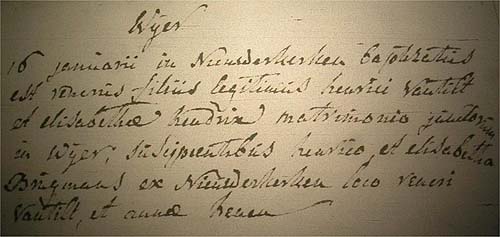 Wijer
16 januarii in Nieuwerkerken baptizatus
est renerus filius legitimus henrici Vantilt
et elisabethæ hendrix matrimonio junctorum
in Wijer, suscipientibus henrico et elisabetha
Brugmans ex Nieuwerkerken loco reneri
Vantilt, et annæ